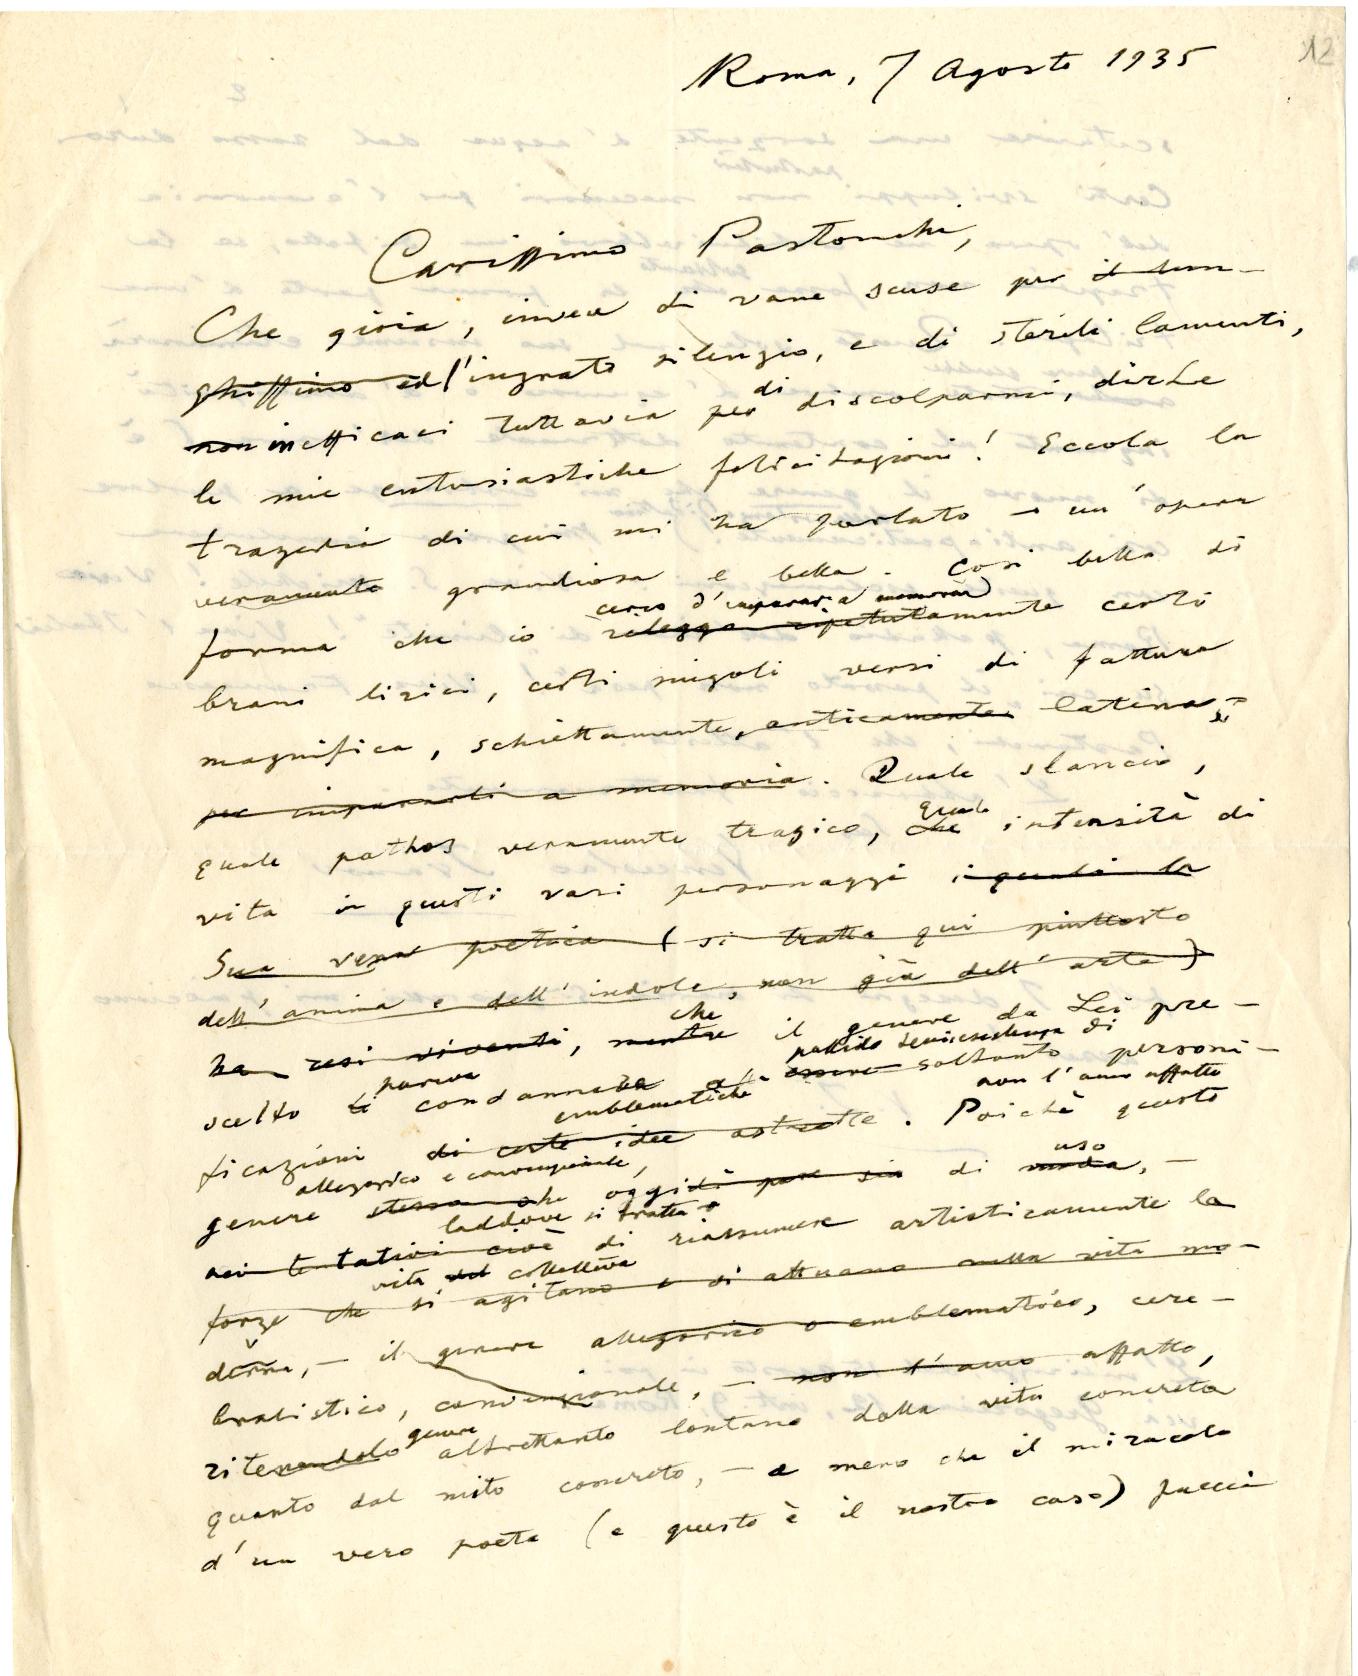 12
Roma, 7 Agosto 1935
Carissimo Pastonchi,
Che gioia, invece di vane scuse per il lun-
ghissimo ed l'ingrato silenzio, e di sterili lamenti,
non inefficaci tuttavia per di discolparmi, dirLe
le mie entusiastiche felicitazioni! Eccola la
tragedia di cui mi ha parlato – un'opera
veramente grandiosa e bella. Così bella di
cerco d'imparare a memoria
forma che io rileggo ripetutamente certi
brani lirici, certi singoli versi di fattura
magnifica, schiettamente, anticamente latina
per impararli a memoria. Quale slancio,
quale
quale pathos veramente tragico, che intensità di
vita in questi vari personaggi i quali la
Sua vena poetica (si tratta qui piuttosto
dell'anima e dell'indole, non già dell'arte)
che
ha resi viventi, mentre il genere da Lei pre-
pareva pallida semiesistenza di
scelto li condannava ad essere soltanto personi-
emblematiche non l'amo affatto
ficazioni di certe idee astratte. Poiché questo
allegorico e convenzionale, uso
genere stesso che oggidì pur sia di moda, –
laddove si tratta
nei tentativi cioè di riassumere artisticamente la
vita collettiva
forze che si agitano e si attuano nella vita mo-
derna, – il genere allegorico o emblematico, cere-
bralistico, convenzionale, – non l'amo affatto,
genere
ritenendolo altrettanto lontano dalla vita concreta
quanto dal mito concreto, – a meno che il miracolo
d'un vero poeta (e questo è il nostro caso) faccia